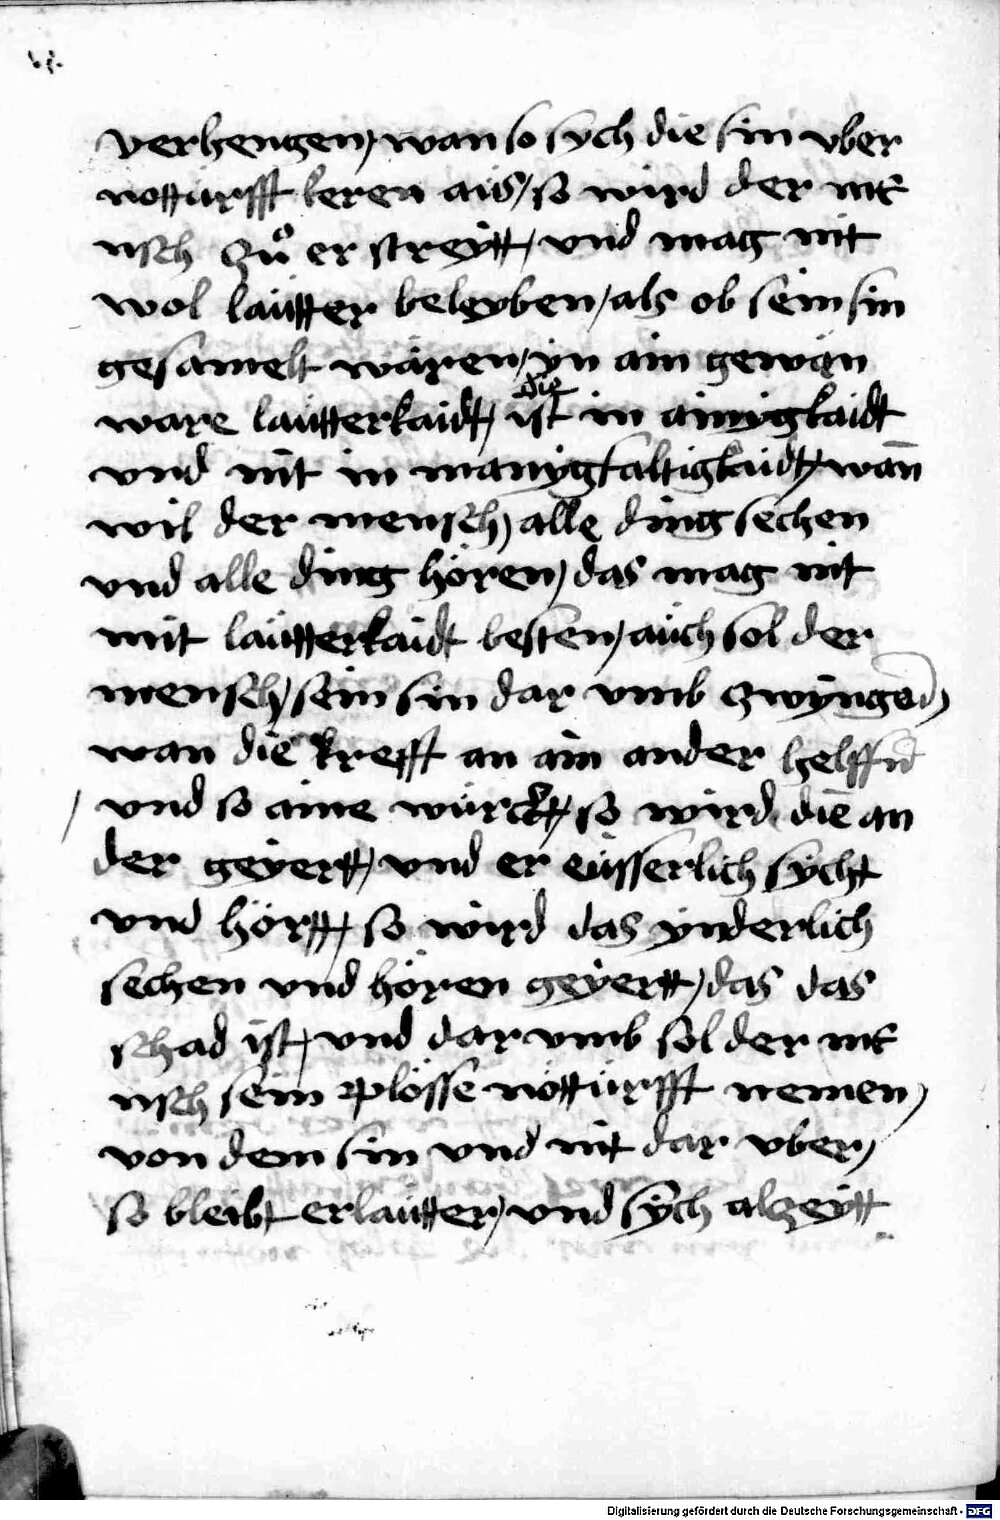 verhengen, wan so sych die sin vber
notturfft keren aus, so wird der me
nsch zů er streÿtt, vnd mag nit
wol laütter beleyben, als ob sein sin
gesamelt wären, ÿn ain gewän
ware laütterkaidt, die ist in ainÿgkaidt
vnd nit in manÿgfaltigkaidt, wan̄
wil der mensch, alle ding sechen
vnd alle ding hören, das mag nit
mit laütterkaidt besten, aüch sol der
mensch, sein sin dar vmb zwÿngen,
wan die krefft an ain ander helffn̄
/ vnd so aine würckt, so wird die an
der geÿertt, vnd er eüsserlich sÿcht
vnd hörtt, so wird das ÿnderlich
sechen vnd hören geÿertt, das das
schad ist, vnd dar vmb sol der me
nsch sein plösse nöttürfft nemen,
von dem sin vnd nit dar vber,
so bleibt er laütter, vnd sÿch alzeÿtt
Digitalisierung gefördert durch die Deutsche Forschungsgemeinschaft - DFG